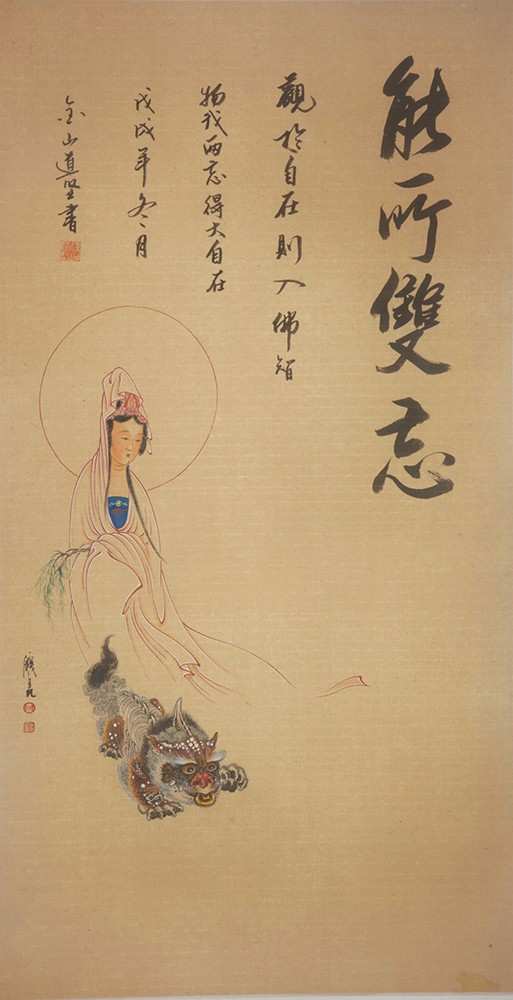 能所雙忘
觀於自在則入佛智
物我兩忘得大自在
戊戌年冬月
金山道堅書